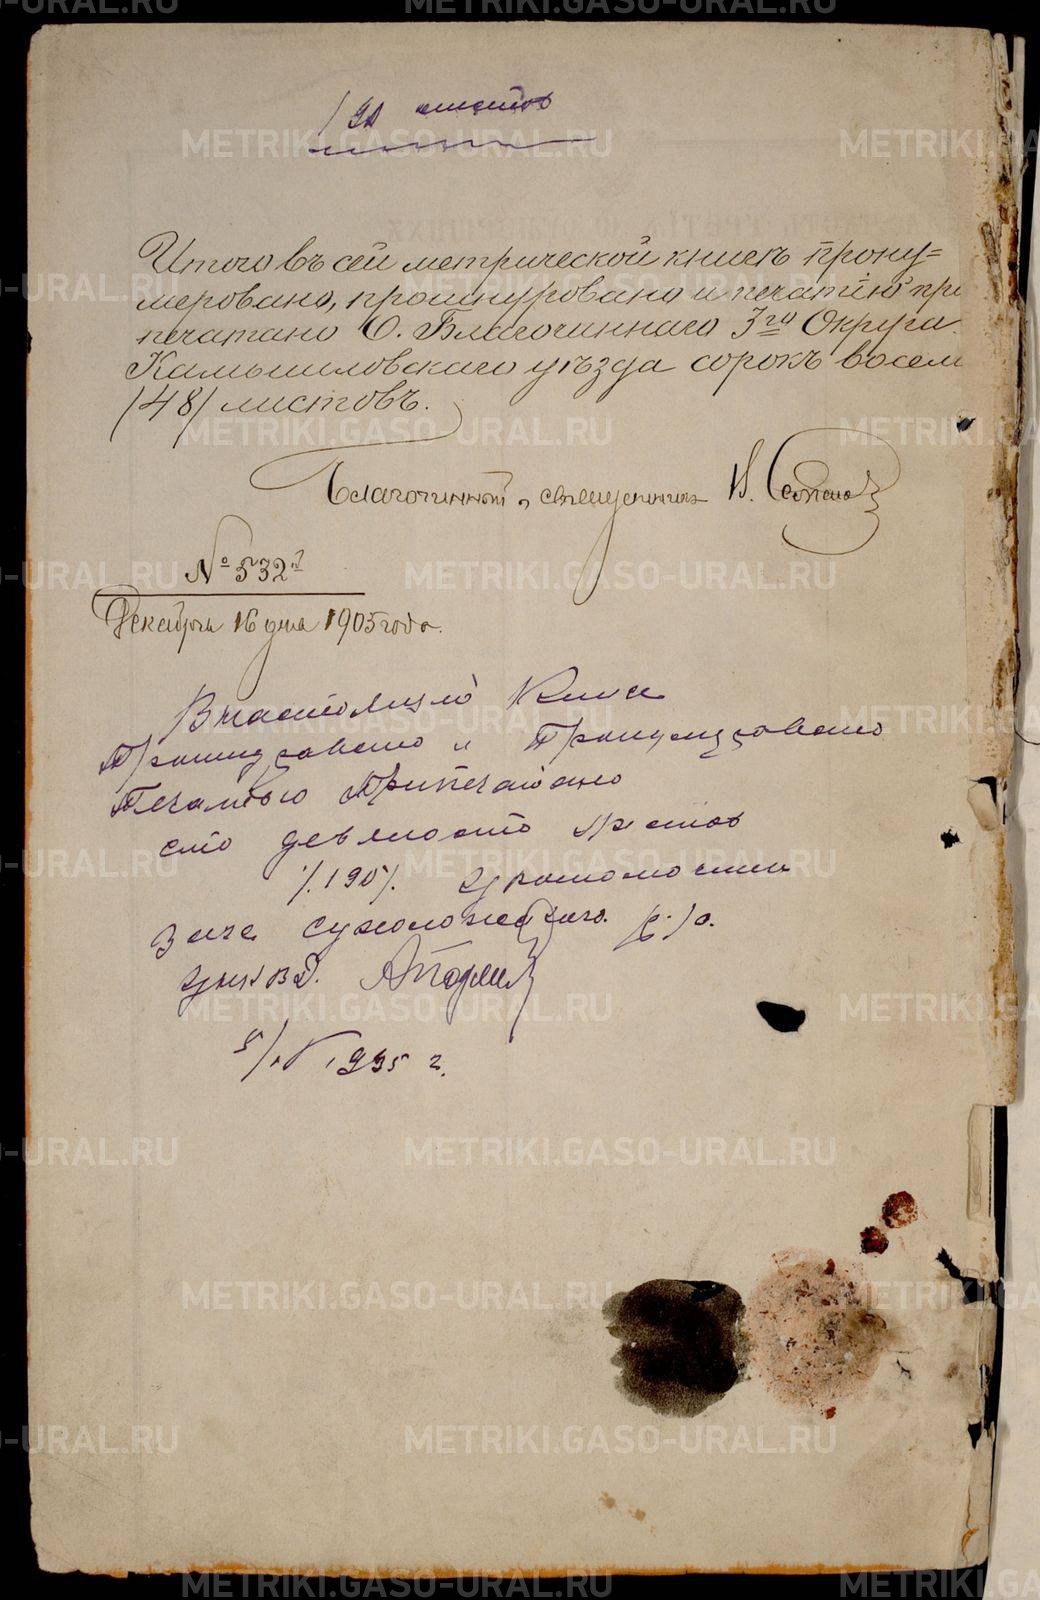 190 листов
Итого въ сей метрической книгѣ прону-
меровано, прошнуровано и печатію при
печатано О. Благочиннаго 3го Округа
Камышловскаго уѣзда сорокъ восем
/48/ листовъ.
Благочинный, священникъ
№ 532й
Декабря 16 дня 1905 года.
В настоящей Книге
Прошнуровано и Пронумеровано
Печатью Припечатано
сто девяносто листов
/.190/.
Загс Сухоложского р/о.
5/IV 1935 г.
METRIKI.GASO-URAL.RU